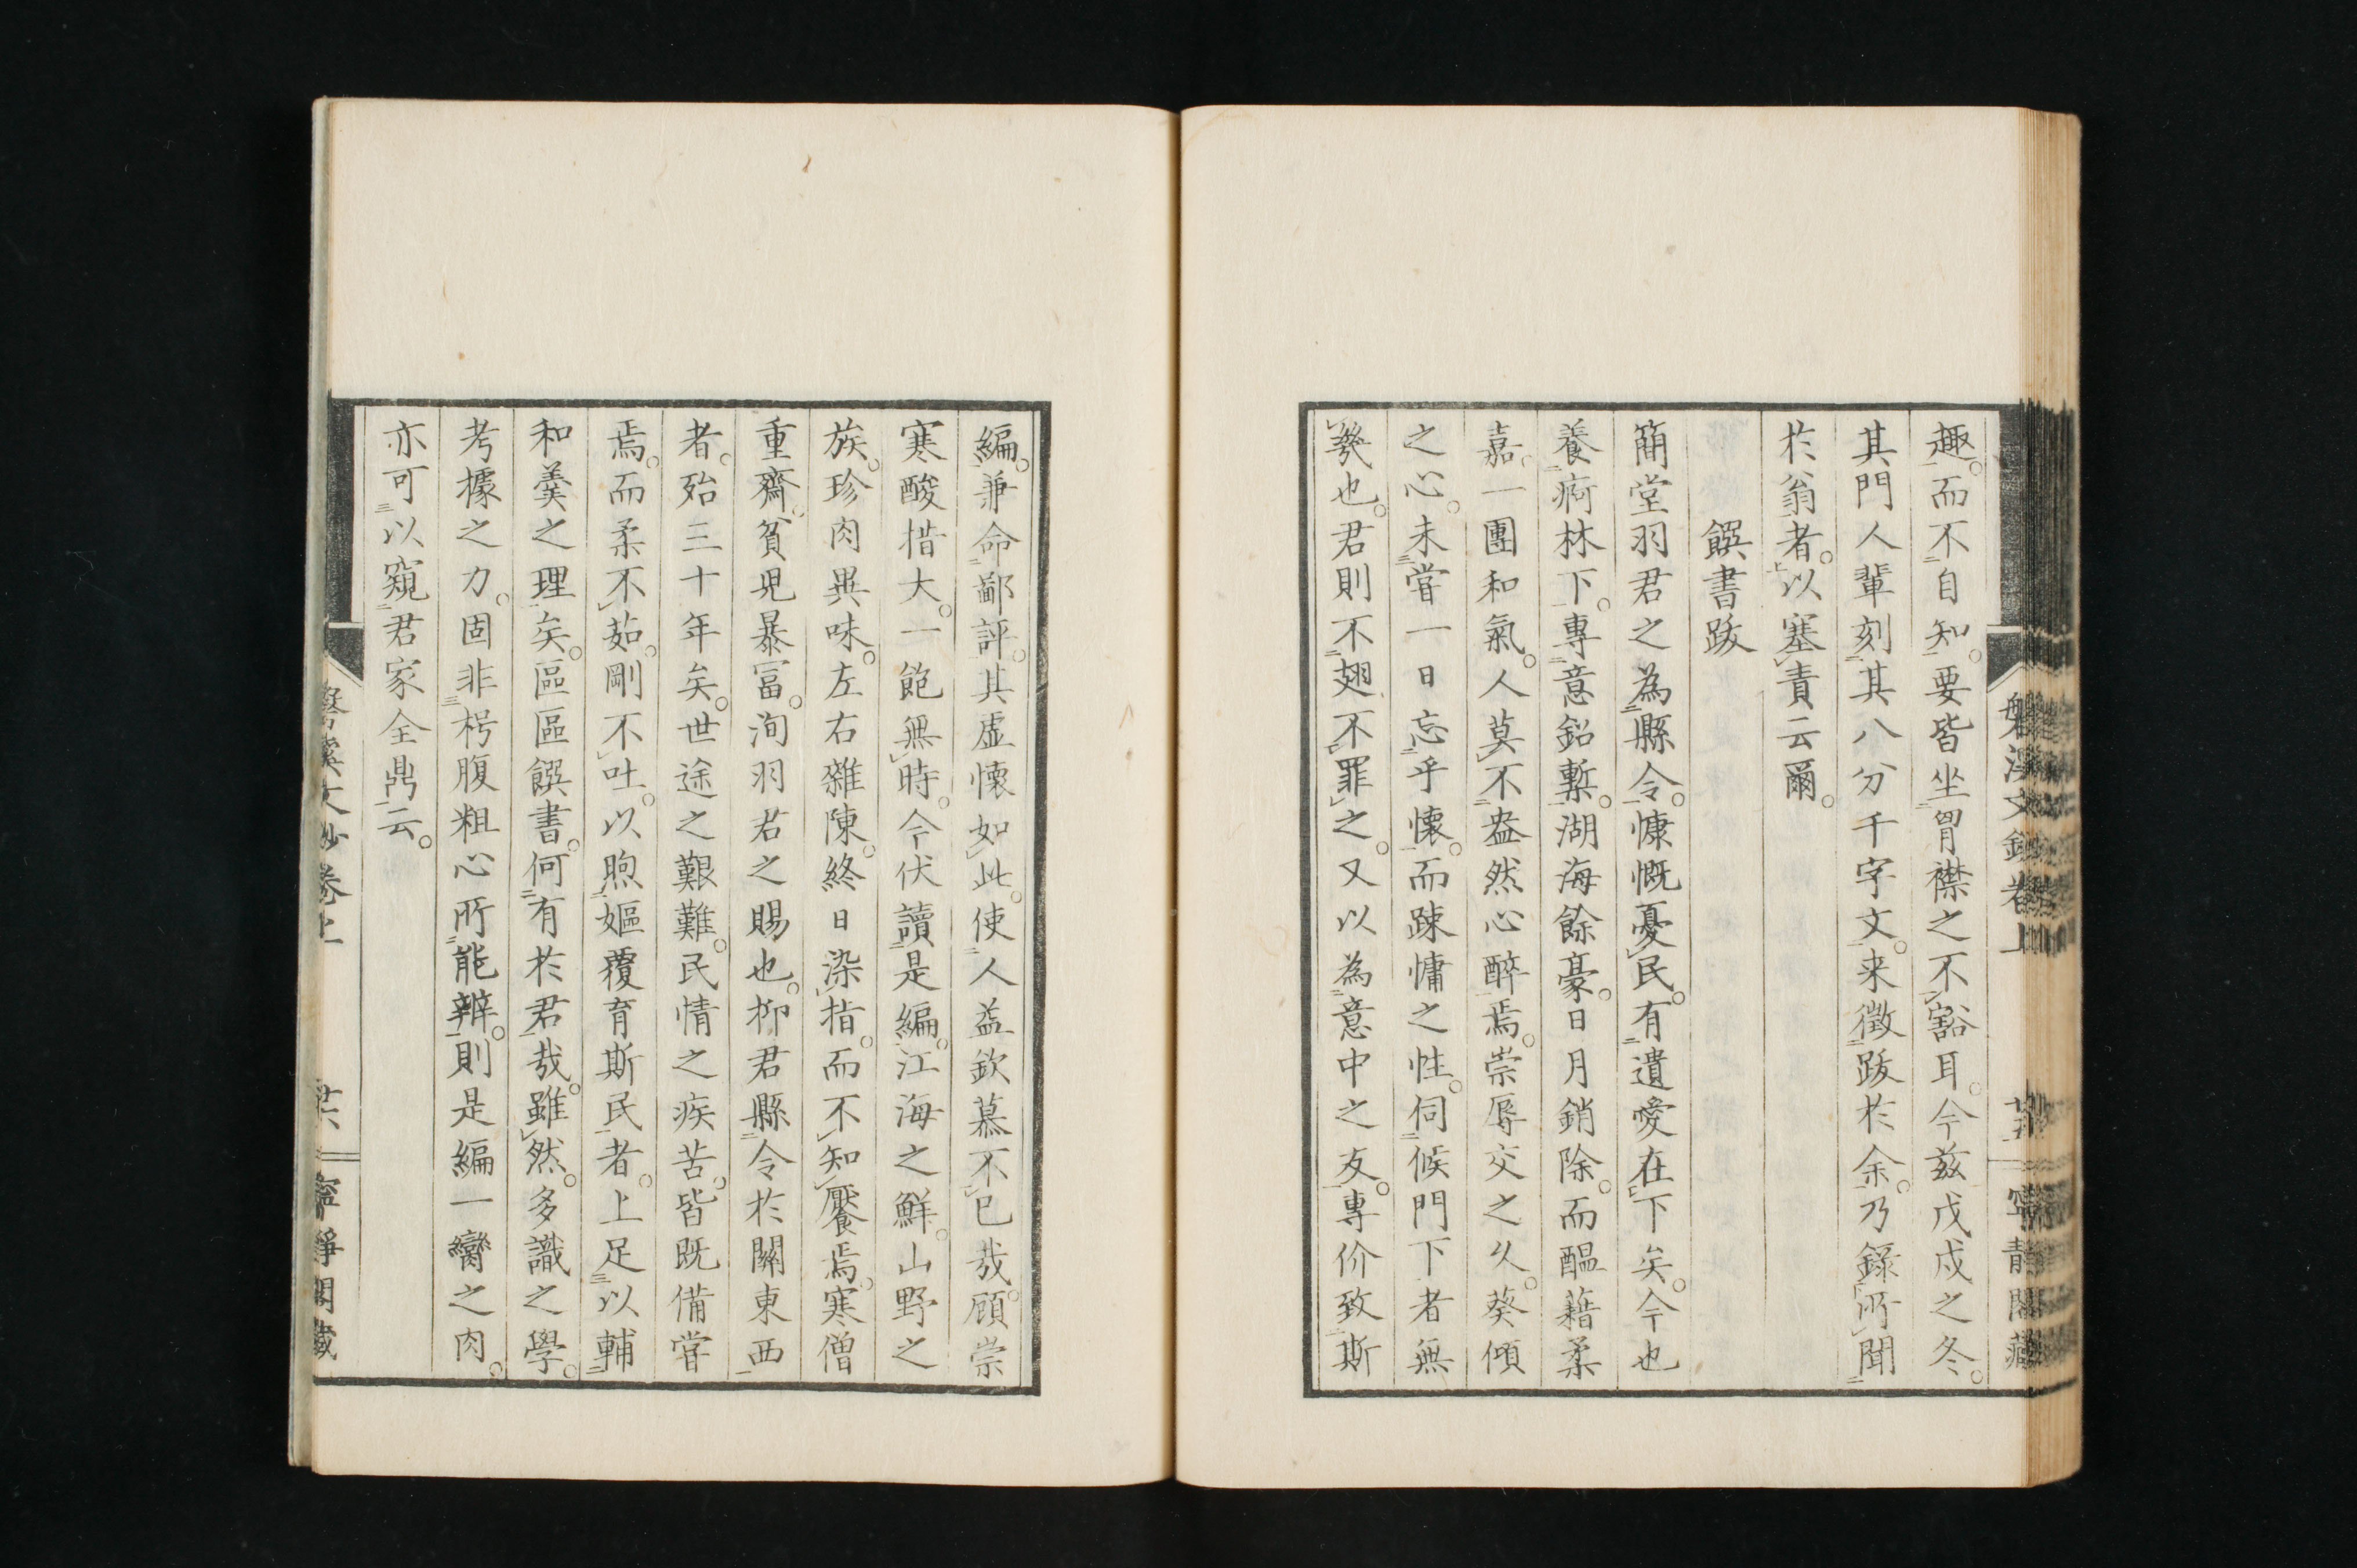 趣。而不自知。要皆坐胷襟之不豁耳。今茲戊戍之冬。
其門人輩刻其八分千字文。来徵跋於余。乃錄所聞
於翁者。以塞責云爾。
饌書跋
簡堂羽君之為縣令。慷慨憂民。有遺愛在下矣。今也
養痾林下。專意鉛槧。湖海餘豪。日月銷除。而醞藉柔
嘉。一團和氣。人莫不盎然心醉焉。崇辱交之久。葵傾
之心。未嘗一日忘乎懷。而踈慵之性。伺候門下者無
幾也。君則不翅不罪之。又以為意中之友。專价致斯
編。兼命鄙評。其虛懷如此。使人益欽慕不已哉。顧崇
寒酸措大。一飽無時。今伏讀是編。江海之鮮。山野之
蔟。珍肉異味。左右雜陳。終日染指。而不知饜焉。寒僧
重齋。貧児暴冨。洵羽君之賜也。抑君縣令於關東西
者。殆三十年矣。世途之艱難。民情之疾苦。皆既備嘗
焉。而柔不茹。剛不吐。以煦嫗覆育斯民者。上足以輔
和羹之理矣。區區饌書。何有於君哉。雖然。多識之學。
考據之力。固非枵腹粗心所能辨。則是編一臠之肉。
亦可以窺君家全鼎云。
磐溪文鈔卷上
廿五
寧靜閣藏
磐溪文鈔卷上
廿六
寧靜閣藏